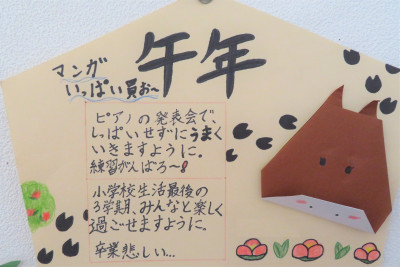 午年
マンガ
いっぱい買お〜
ピアノの発表会で、
しっぱいせずにうまく
いきますように。
練習がんばろ〜!
小学校生活最後の
3学期、みんなと楽しく
過ごせますように。
卒業悲しい…